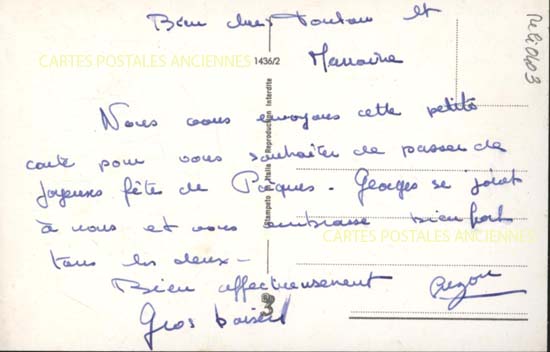 Bien chers Toutou et
Marraine
CARTES POSTALES ANCIENNES
1436/2
Nous vous envoyons cette petite
carte pour vous souhaiter de passer de
Joyeuses fête de Pâques. Georges se joint
à nous et vous embrasse bien fort
tous les deux -
CARTES POSTALES ANCIENNES
Bien affectueusement
Gros baisers
Stampato in Italia - Reproduction Interdite
3